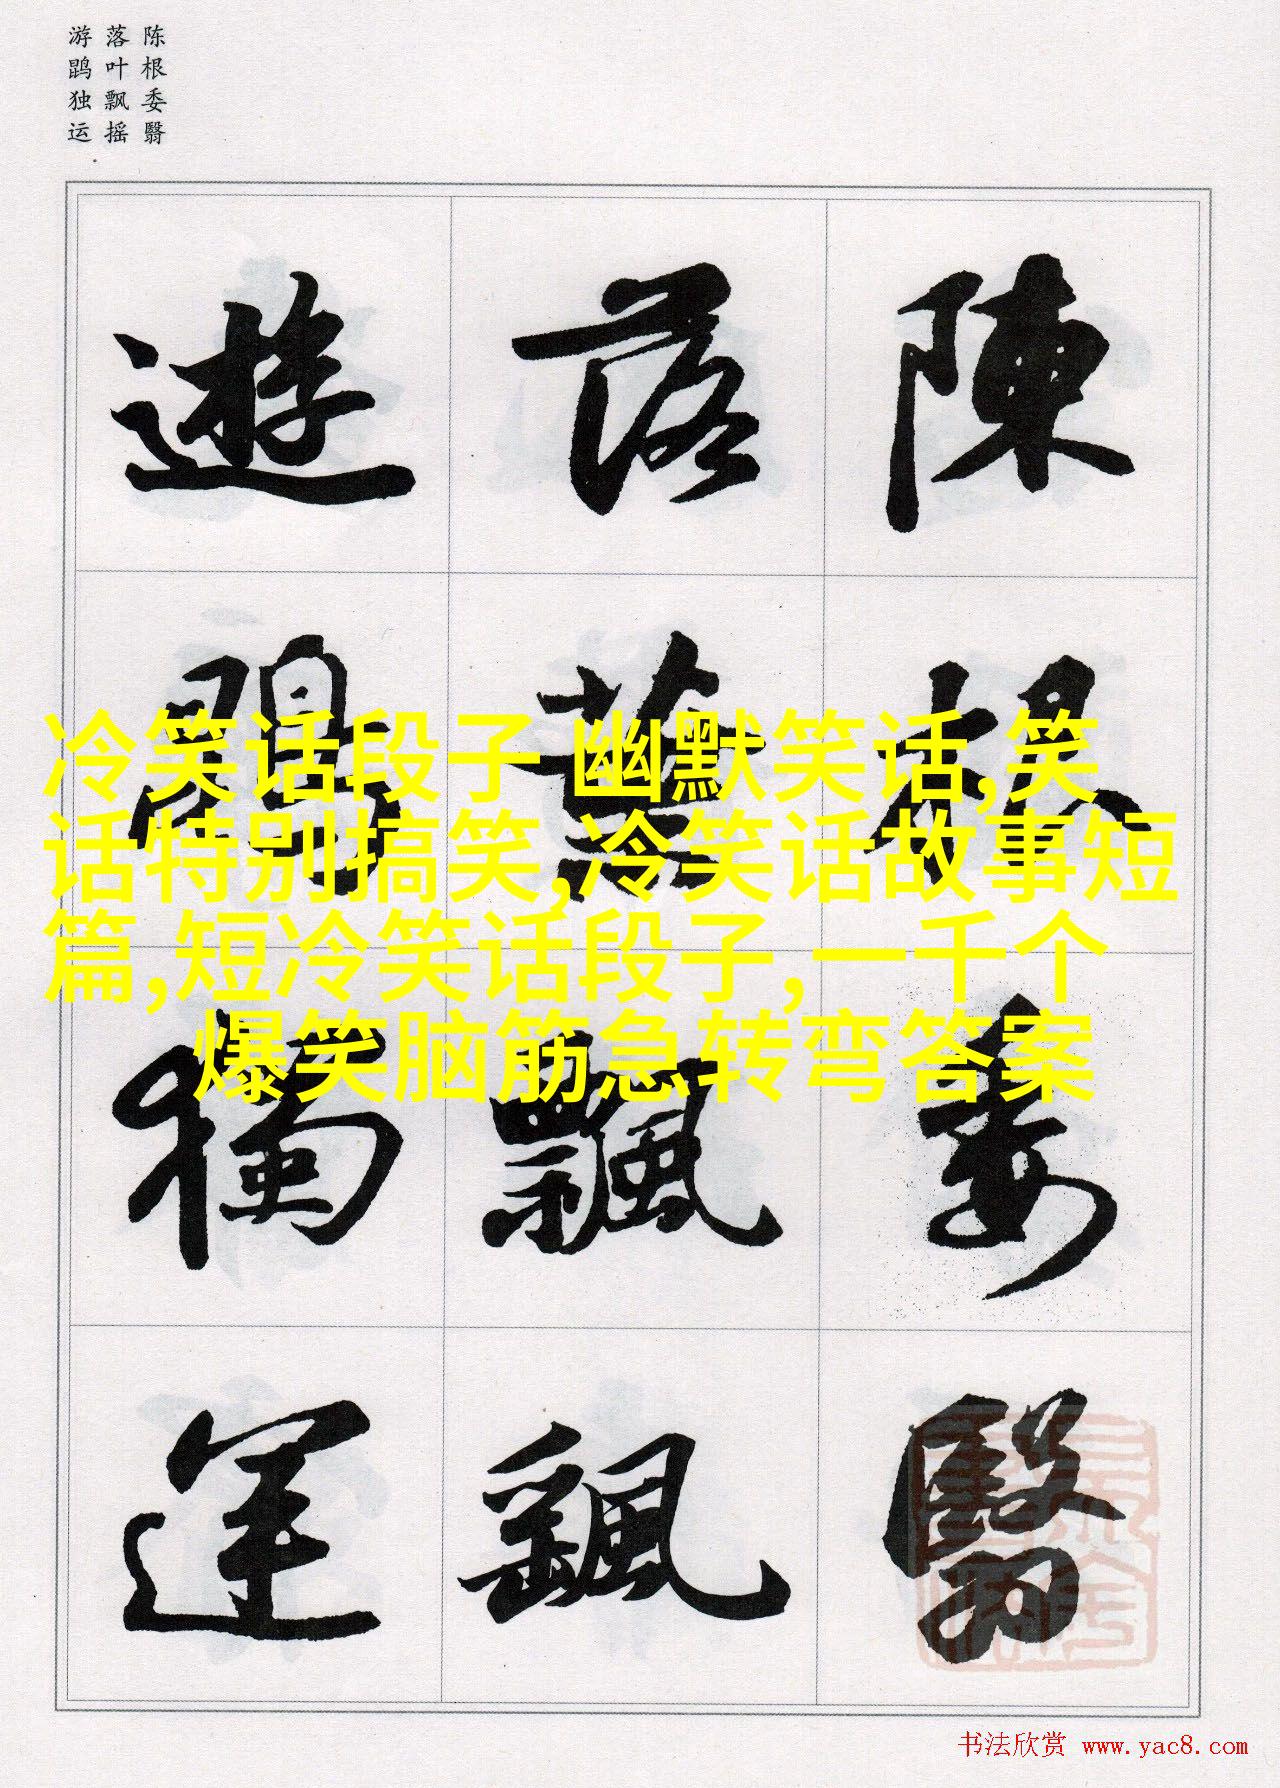 陈根委翳
落叶飘摇
游鹍独运
陳根委翳
落葉飄颻
遊鵾獨運
冷笑话段子 幽默笑话,笑
话特别搞笑,冷笑话故事短
篇,短冷笑话段子,一千个
爆笑脑筋急转弯答案
书法欣赏 www.yac8.com